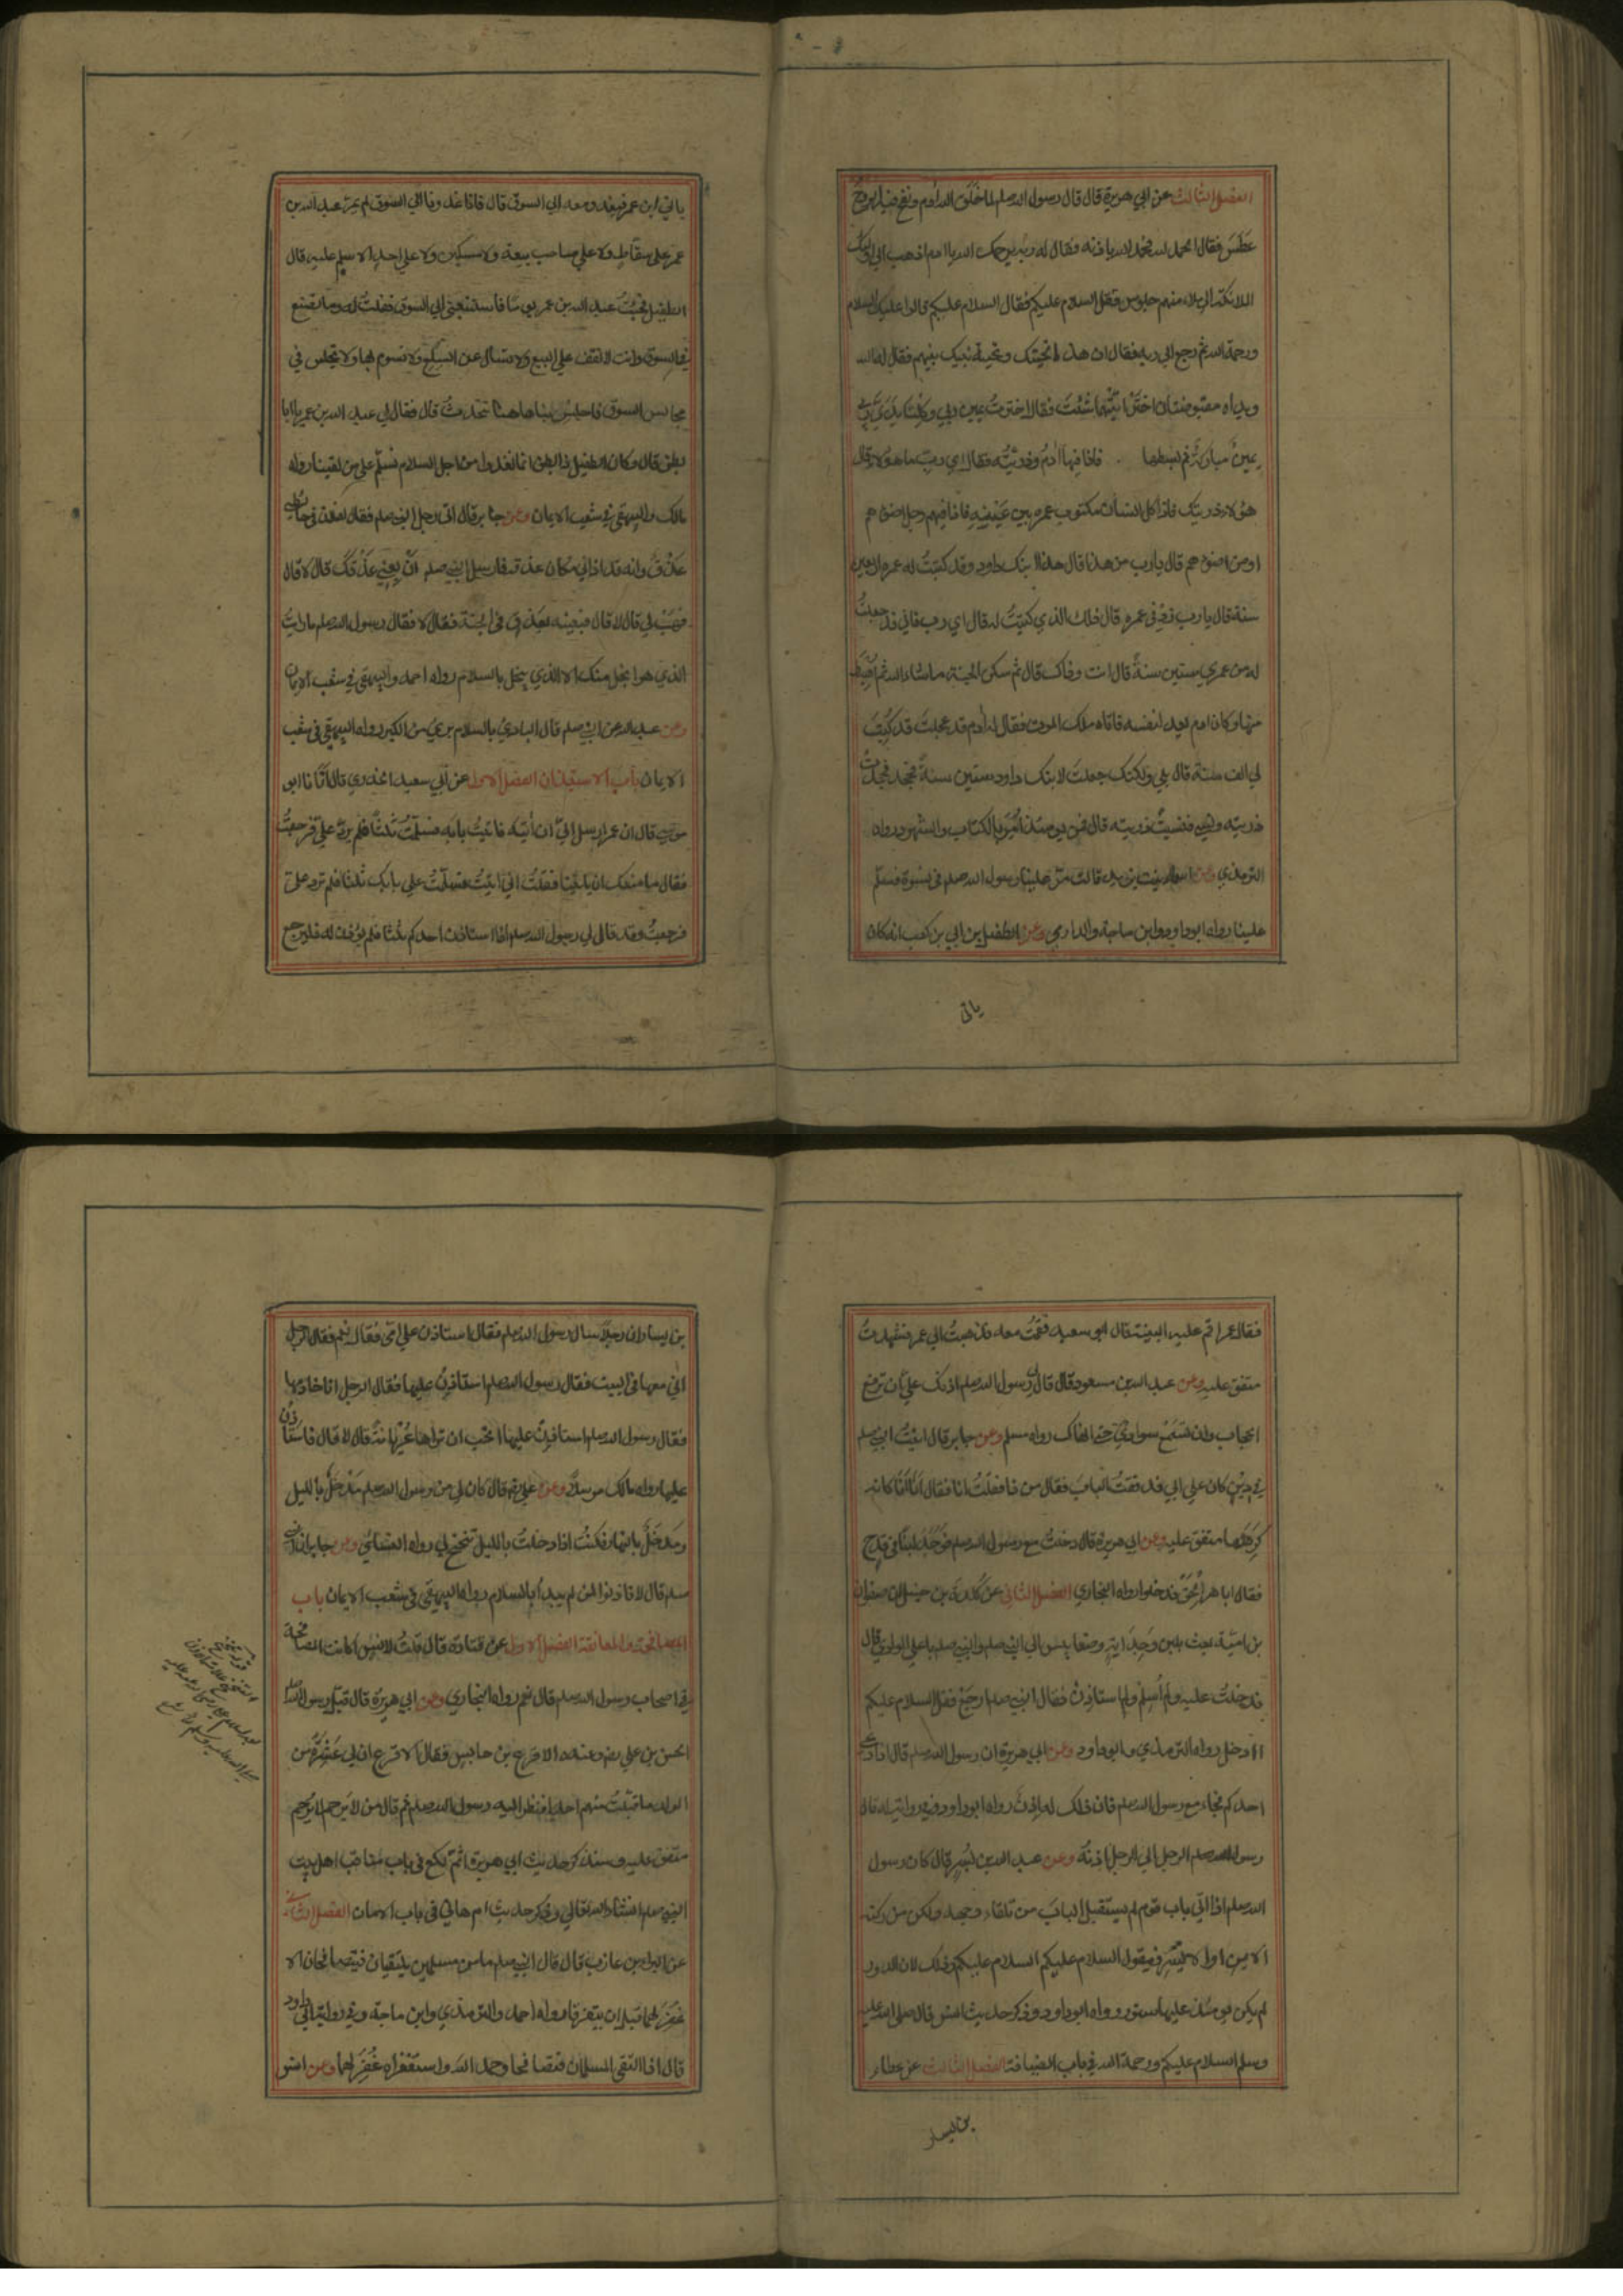 الفصل الثالث عن ابي هريرة قال قال رسول الله صلعم لما خلق الله آدم ونفخ فيه الروح
عَطَسَ فقال الحمد لله فحمد الله باذنه فقال له ربه يرحمك الله يا ادم اذهب الى اولئك
الملائكة الى ملاء منهم جلوس فقل السلام عليكم فقال السلام عليكم قالوا عليك السلام
ورحمة الله ثم رجع الى ربه فقال ان هذه تحيتك وتحية بنيك بينهم فقال له الله
ويداه مقبوضتان اختر ايتهما شئت فقال اخترت يمين ربي وكلتا يدي ربي
يمين مباركة ثم بسطها فاذا فيها آدم وذريته فقال اي رب ما هؤلاء قال
هؤلاء ذريتك فاذا كل انسان مكتوب عمره بين عينيه فاذا فيهم رجل اضوءهم
او من اضوءهم قال يا رب من هذا قال هذا ابنك داود وقد كتبت له عمره اربعين
سنة قال يا رب زد في عمره قال ذلك الذي كتبت له قال اي رب فاني قد جعلت
له من عمري ستين سنة قال انت وذاك قال ثم سكن الجنة ما شاء الله ثم اهبط
منها وكان ادم يعد لنفسه فاتاه ملك الموت فقال له آدم قد عجلت قد كتب
لي الف سنة قال بلى ولكنك جعلت لابنك داود ستين سنة فجحد فجحدت
ذريته ونسي فنسيت ذريته قال فمن يومئذ أمر بالكتاب والشهود رواه
الترمذي وعن اسماء بنت يزيد قالت مر علينا رسول الله صلعم في نسوة فسلم
علينا رواه ابوداود وابن ماجة والدارمي وعن الطفيل بن ابي بن كعب انه كان
ياتي
ياتي ابن عمر فيغدو معه الى السوق قال فاذا غدونا الى السوق لم يمر عبد الله بن
عمر على سقاط ولا على صاحب بيعة ولا مسكين ولا على احد الا سلم عليه قال
الطفيل فجئت عبد الله بن عمر يوما فاستتبعني الى السوق فقلت له وما تصنع
في السوق وانت لا تقف على البيع ولا تسال عن السلع ولا تسوم بها ولا تجلس في
مجالس السوق فاجلس بنا هاهنا نتحدث قال فقال لي عبد الله بن عمر يا ابا
بطن قال وكان الطفيل ذا بطن انما نغدوا من اجل السلام نسلم على من لقيناه رواه
مالك والبيهقي في شعب الايمان وعن جابر قال اتى رجل النبي صلعم فقال لفلان في حائطي
عذق وانه قد اذاني مكان عذقه فارسل النبي صلعم ان بعني عذقك قال لا قال
فهب لي قال لا قال فبعنيه بعذق في الجنة فقال لا فقال رسول الله صلعم ما رايت
الذي هو ابخل منك الا الذي يبخل بالسلام رواه احمد والبيهقي في شعب الايمان
وعن عبد الله عن النبي صلعم قال البادي بالسلام بري من الكبر رواه البيهقي في شعب
الايمان باب الاستيذان الفصل الاول عن ابي سعيد الخدري قال اتانا ابو
موسى قال ان عمر ارسل الي ان آتيه فاتيت بابه فسلمت ثلثا فلم يرد علي فرجعت
فقال ما منعك ان تاتينا فقلت اني اتيت فسلمت على بابك ثلثا فلم ترد علي
فرجعت وقد قال لي رسول الله صلعم اذا استاذن احدكم ثلثا فلم يؤذن له فليرجع
فقال عمر اقم عليه البينة قال ابو سعيد فقمت معه فذهبت الى عمر فشهدت
متفق عليه وعن عبد الله بن مسعود قال قال لي رسول الله صلعم اذنك علي ان ترفع
الحجاب وان تسمع سوادي حتى انهاك رواه مسلم وعن جابر قال اتيت النبي صلعم
في دين كان على ابي فدققت الباب فقال من ذا فقلت انا فقال انا انا كانه
كرهها متفق عليه وعن ابي هريرة قال دخلت مع رسول الله صلعم فوجد لبنا في قدح
فقال ابا هر الحق فدخلوا رواه البخاري الفصل الثاني عن كلدة بن حنبل ان صفوان
بن امية بعث بلبن وجداية وضغابيس الى النبي صلعم والنبي صلعم باعلى الوادي قال
فدخلت عليه ولم اسلم ولم استاذن فقال النبي صلعم ارجع فقل السلام عليكم
أادخل رواه الترمذي وابوداود وعن ابي هريرة ان رسول الله صلعم قال اذا دعي
احدكم فجاء مع رسول الله صلعم فان ذلك له اذن رواه ابوداود وفي رواية له قال
رسول الله صلعم الرجل الى الرجل اذنه وعن عبد الله بن بسر قال كان رسول
الله صلعم اذا اتى باب قوم لم يستقبل الباب من تلقاء وجهه ولكن من ركنه
الايمن او الايسر فيقول السلام عليكم السلام عليكم وذلك لان الدور
لم يكن يومئذ عليها ستور رواه ابوداود وذكر حديث انس قال صلى الله عليه
وسلم السلام عليكم ورحمة الله في باب الضيافة الفصل الثالث عن عطاء
بن يسار
بن يسار ان رجلا سال رسول الله صلعم فقال استاذن على امي فقال نعم فقال الرجل
اني معها في البيت فقال رسول الله صلعم استاذن عليها فقال الرجل اني خادمها
فقال رسول الله صلعم استاذن عليها اتحب ان تراها عريانة قال لا قال فاستاذن
عليها رواه مالك مرسلا وعن علي رضه قال كان لي من رسول الله صلعم مدخل بالليل
ومدخل بالنهار فكنت اذا دخلت بالليل تنحنح لي رواه النسائي وعن جابر ان النبي
صلعم قال لا تاذنوا لمن لم يبدأ بالسلام رواه البيهقي في شعب الايمان باب
المصافحة والمعانقة الفصل الاول عن قتادة قال قلت لانس اكانت المصافحة
في اصحاب رسول الله صلعم قال نعم رواه البخاري وعن ابي هريرة قال قبل رسول الله صلعم
الحسن بن علي رضه وعنده الاقرع بن حابس فقال الاقرع ان لي عشرة من
الولد ما قبلت منهم احدا فنظر اليه رسول الله صلعم ثم قال من لا يرحم لا يرحم
متفق عليه وسنذكر حديث ابي هريرة اثم لكع في باب مناقب اهل بيت
النبي صلعم انشاء الله تعالى وذكر حديث ام هاني في باب الامان الفصل الثاني
عن البراء بن عازب قال قال النبي صلعم ما من مسلمين يلتقيان فيتصافحان الا
غفر لهما قبل ان يتفرقا رواه احمد والترمذي وابن ماجة وفي رواية ابي داود
قال اذا التقى المسلمان فتصافحا وحمدا الله واستغفراه غفر لهما وعن انس